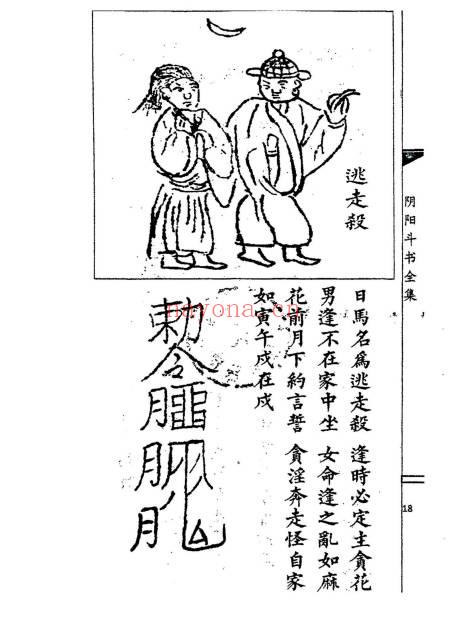 逃走殺
阴阳斗书全集
日馬名爲逃走殺 逢時必定主貪花
男逢不在家中坐 女命逢之亂如麻
花前月下約言誓 貪淫奔走怪自家
如寅午戍在戍
敕令
18
nayona.cn